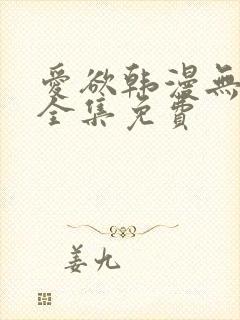 愛欲韩漫無
全集免費
姜九